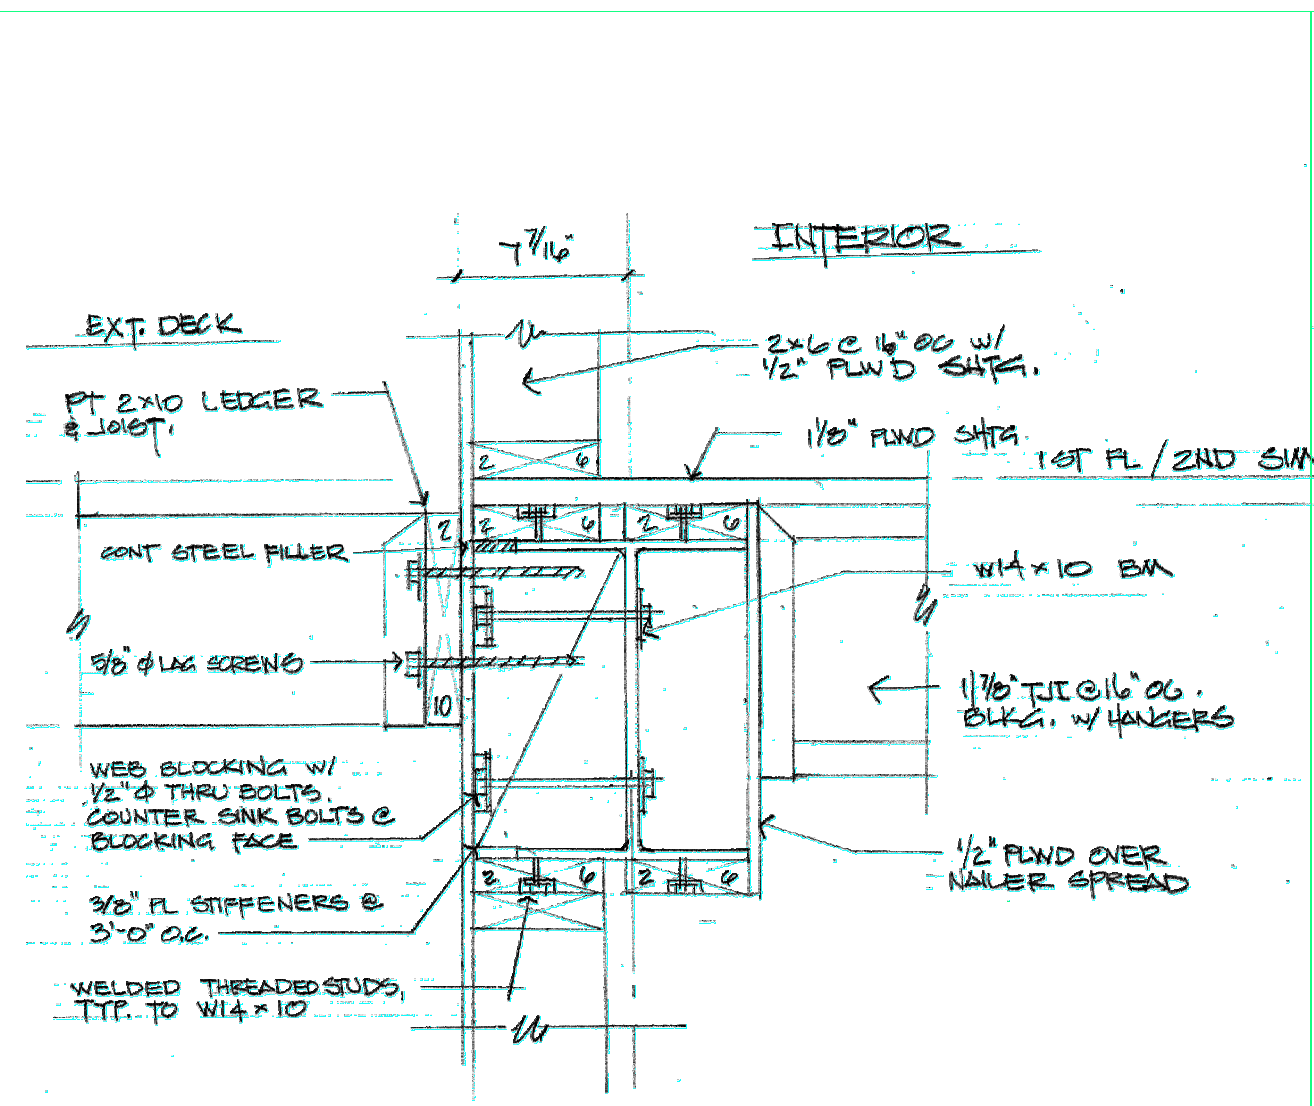 7 7/16"
INTERIOR
EXT. DECK
2x6 @ 16" OC w/
1/2" PLWD SHTG.
PT 2x10 LEDGER
& JOIST.
1 1/8" PLWD SHTG.
1ST FL / 2ND SIM
2 6
2 2 6 2 6
CONT STEEL FILLER
W14 x 10 BM
5/8" φ LAG SCREWS
11 7/8" TJI @ 16" OC.
BLKG. w/ HANGERS
10
WEB BLOCKING W/
1/2" φ THRU BOLTS.
COUNTER SINK BOLTS @
BLOCKING FACE
1/2" PLWD OVER
NAILER SPREAD
2 6 2 6
3/8" PL STIFFENERS @
3'-0" O.C.
WELDED THREADED STUDS,
TYP. TO W14 x 10